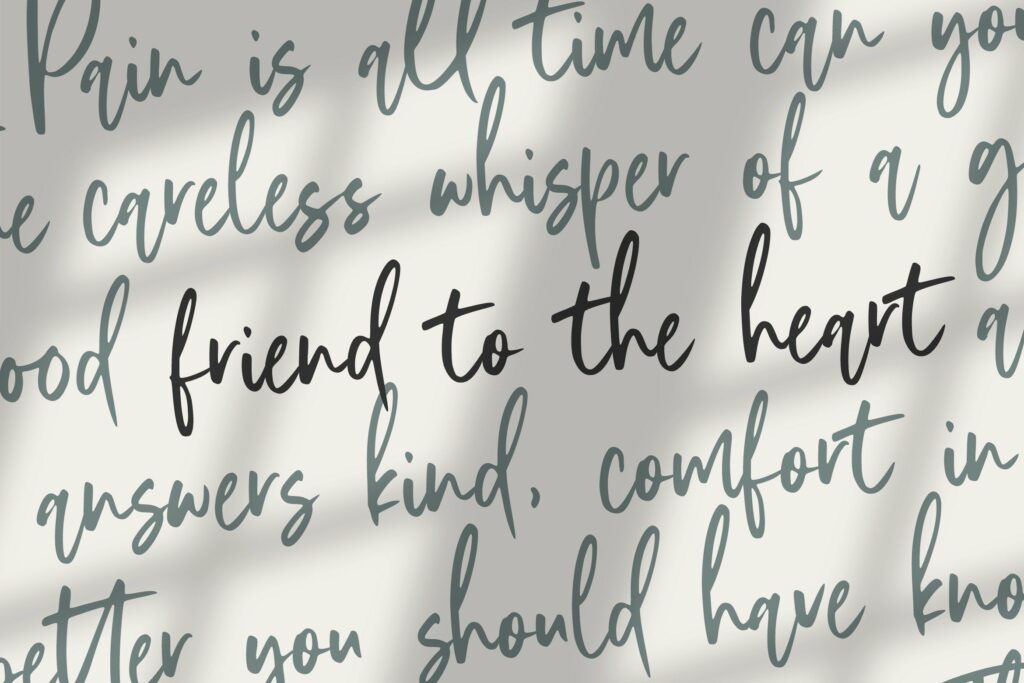 Pain is all time can you
e careless whisper of a g
ood friend to the heart a
answers kind, comfort in
etter you should have kno